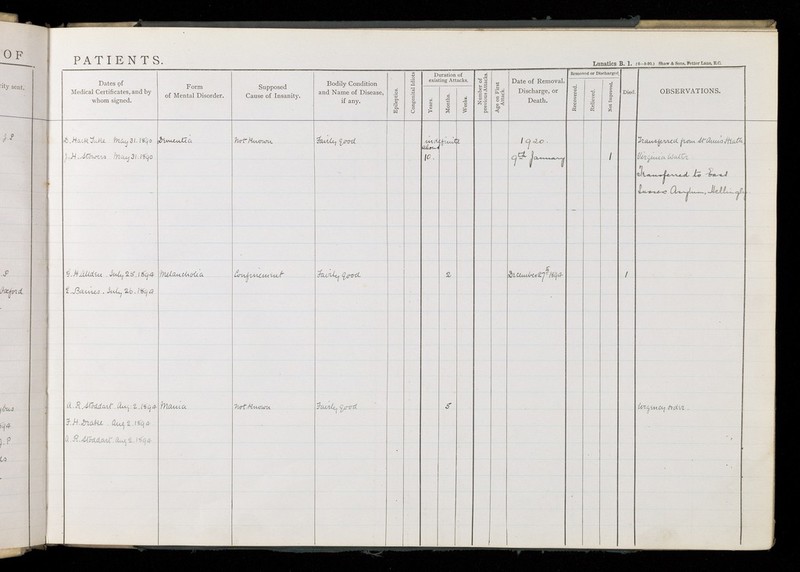 OF
PATIENTS.
Lunatics R. 1. Shaw & Sons, Fetter Lane, E.C.
Dates of
Medical Certificates, and by
whom signed.
Form
of Mental Disorder.
Supposed
Cause of Insanity.
Bodily Condition
and Name of Disease,
if any.
Epileptics.
Congenital Idiots
Duration of
existing Attacks.
Years.
Months.
Weeks.
Number of
previous Attacks.
Age on First
Attack.
Date of Removal,
Discharge, or
Death.
Removed or Discharged
Recovered.
Relieved.
Not Improved.
Died
OBSERVATIONS.
ity sent.
May 31. 1890 Dementia Not Known Fairly good indefinite 1920 Transferred from St Anns Heath
J. H. Stowers May 31. 1890 10 9th January 1 Virginia Water
Transferred to East
Sussex Asylum, Hellingly
July 25. 1890 Melancholia Confinement Fairly good 2 December 27th 1890 1
Barnes. July 26. 1890
A. R. Stoddart Aug 2. 1890 Mania Not Known Fairly good 5 Urgency order.
F. H. Drake Aug 2 1890
A. R. Stoddart Aug 2. 1890